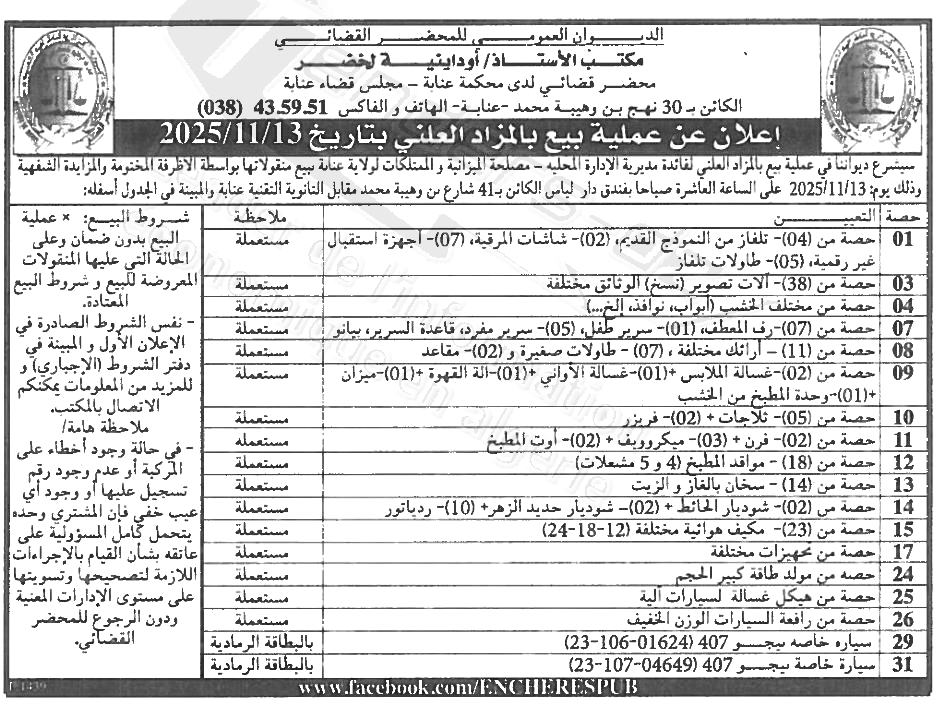 الديوان العمومي للمحضر القضائي
مكتب الأستاذ/ أوداينية لخضر
محضر قضائي لدى محكمة عنابة – مجلس قضاء عنابة
الكائن بـ 30 نهج بن وهيبة محمد -عنابة- الهاتف و الفاكس 43.59.51 (038)
إعلان عن عملية بيع بالمزاد العلني بتاريخ 2025/11/13
سيشرع ديواننا في عملية بيع بالمزاد العلني لفائدة مديرية الإدارة المحلية – مصلحة الميزانية و الممتلكات لولاية عنابة بيع منقولاتها بواسطة الأظرفة المختومة والمزايدة الشفهية
وذلك يوم: 2025/11/13 على الساعة العاشرة صباحا بفندق دار لباس الكائن بـ41 شارع بن وهيبة محمد مقابل الثانوية التقنية عنابة والمبينة في الجدول أسفله:
حصة التعييــن ملاحظة
01 حصة من (04)- تلفاز من النموذج القديم، (02)- شاشات المرقبة، (07)- أجهزة استقبال غير رقمية، (05)- طاولات تلفاز مستعملة
03 حصة من (38)- آلات تصوير (نسخ) الوثائق مختلفة مستعملة
04 حصة من مختلف الخشب (أبواب، نوافذ، إلخ...) مستعملة
07 حصة من (07)-رف المعطف، (01)- سرير طفل، (05)- سرير مفرد، قاعدة السرير، بيانو مستعملة
08 حصة من (11) – أرائك مختلفة ، (07) – طاولات صغيرة و (02)- مقاعد مستعملة
09 حصة من (02)-غسالة الملابس +(01)-غسالة الأواني +(01)-الة القهوة +(01)-ميزان
+(01)-وحدة المطبخ من الخشب مستعملة
10 حصة من (05)- ثلاجات + (02)- فريزر مستعملة
11 حصة من (02)- فرن + (03)- ميكروويف + (02)- أوت المطبخ مستعملة
12 حصة من (18)- مواقد المطبخ (4 و 5 مشعلات) مستعملة
13 حصة من (14)- سخان بالغاز و الزيت مستعملة
14 حصة من (02)- شوديار الحائط + (02)– شوديار حديد الزهر+ (10)- ردياتور مستعملة
15 حصة من (23)- مكيف هوائية مختلفة (12-18-24) مستعملة
17 حصة من تجهيزات مختلفة مستعملة
24 حصه من مولد طاقة كبير الحجم مستعملة
25 حصة من هيكل غسالة لسيارات آلية مستعملة
26 حصة من رافعة السيارات الوزن الخفيف مستعملة
29 سياره خاصه بيجــو 407 (23-106-01624) بالبطاقة الرمادية
31 سيارة خاصة بيجــو 407 (23-107-04649) بالبطاقة الرمادية
شــروط البيــع: × عملية
البيع بدون ضمان وعلى
الحالة التي عليها المنقولات
المعروضة للبيع و شروط البيع
المعتادة.
- نفس الشروط الصادرة في
الإعلان الأول و المبينة في
دفتر الشروط (الإجباري) و
للمزيد من المعلومات يمكنكم
الاتصال بالمكتب.
ملاحظة هامة/
- في حالة وجود أخطاء على
المركبة أو عدم وجود رقم
تسجيل عليها أو وجود أي
عيب خفي فإن المشتري وحده
يتحمل كامل المسؤولية على
عاتقه بشأن القيام بالإجراءات
اللازمة لتصحيحها وتسويتها
على مستوى الإدارات المعنية
ودون الرجوع للمحضر
القضائي.
www.facebook.com/ENCHERESPUB